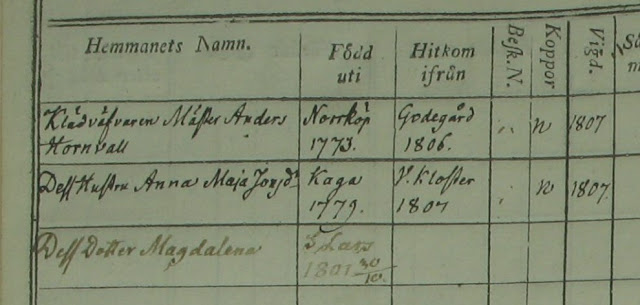 Hemmanets Namn. Född uti Hitkom ifrån Besk.N. Koppor Vigd.
Klädväfvaren Mäster Anders Norrköp Godegård n 1807
Hornvall 1773. 1806.
Dess Hustru Anna Maja Jonsdr Kaga V. Kloster n 1807
1779. 1807
Dess Dotter Magdalena S. Lars
1801 30/10.